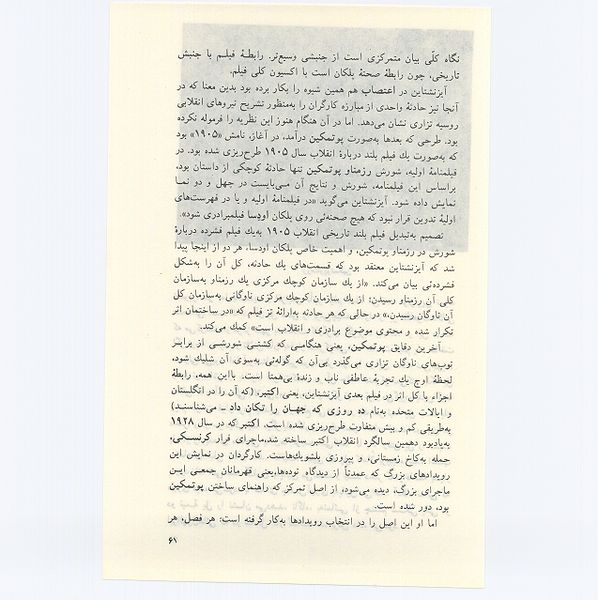 نگاه کلّی بیان متمرکزی است از جنبشی وسیع‌تر. رابطهٔ فیلم با جنبش
تاریخی، چون رابطهٔ صحنهٔ پلکان است با اکسیون کلی فیلم.
آیزنشتاین در اعتصاب هم همین شیوه را بکار برده بود بدین معنا که در
آنجا نیز حادثهٔ واحدی از مبارزه کارگران را به‌منظور تشریح نیروهای انقلابی
روسیه تزاری نشان می‌دهد. اما در آن هنگام هنوز این نظریه را فرموله نکرده
بود. طرحی که بعدها به‌صورت پوتمکین درآمد، در آغاز، نامش «۱۹۰۵» بود
که به‌صورت یك فیلم بلند دربارهٔ انقلاب سال ۱۹۰۵ طرح‌ریزی شده بود. در
فیلمنامهٔ اولیه، شورش رزمناو پوتمکین تنها حادثهٔ کوچکی از داستان بود،
براساس این فیلمنامه، شورش و نتایج آن می‌بایست در چهل و دو نما
نمایش داده شود. آیزنشتاین می‌گوید «در فیلمنامهٔ اولیه و یا در فهرست‌های
اولیهٔ تدوین قرار نبود که هیچ صحنه‌ئی روی پلکان اودسا فیلمبرادری شود».
تصمیم به‌تبدیل فیلم بلند تاریخی انقلاب ۱۹۰۵ به‌یك فیلم فشرده دربارهٔ
شورش در رزمناو پوتمکین، و اهمیت خاص پلکان اودسا، هر دو از اینجا پیدا
شد که آیزنشتاین معتقد بود که قسمت‌های یك حادثه، کل آن را به‌شکل
فشرده‌ئی بیان می‌کند. «از یك سازمان کوچك مرکزی یك رزمناو به‌سازمان
کلی آن رزمناو رسیدن؛ از یك سازمان کوچك مرکزی ناوگانی به‌سازمان کل
آن ناوگان رسیدن،» در حالی که هر حادثه به‌ارائهٔ تز فیلم که «در ساختمان اثر
تکرار شده و محتوی موضوع برادری و انقلاب است» کمك می‌کند.
آخرین دقایق پوتمکین، یعنی هنگامی که کشتی شورشی از برابر
توپ‌های ناوگان تزاری می‌گذرد بی‌آن که گوله‌ئی به‌سوی آن شلیك شود،
لحظهٔ اوج یك تجربهٔ عاطفی ناب و زندهٔ بی‌همتا است. بااین همه، رابطهٔ
اجزاء با کل اثر در فیلم بعدی آیزنشتاین، یعنی اکتبر، (که آن را در انگلستان
و ایالات متحده به‌نام ده روزی که جهان را تکان داد ـ می‌شناسند)
به‌طریقی کم و بیش متفاوت طرح‌ریزی شده است. اکتبر که در سال ۱۹۲۸
به‌یادبود دهمین سالگرد انقلاب اکتبر ساخته شد، ماجرای فرار کرنسکی،
حمله به‌کاخ زمستانی، و پیروزی بلشویك‌هاست. کارگردان در نمایش این
رویدادهای بزرگ که عمدتاً از دیدگاه توده‌ها، یعنی قهرمانان جمعی این
ماجرای بزرگ، دیده می‌شود، از اصل تمرکز که راهنمای ساختن پوتمکین
بود، دور شده است.
اما او این اصل را در انتخاب رویدادها به‌کار گرفته است: هر فصل، هر
۶۱